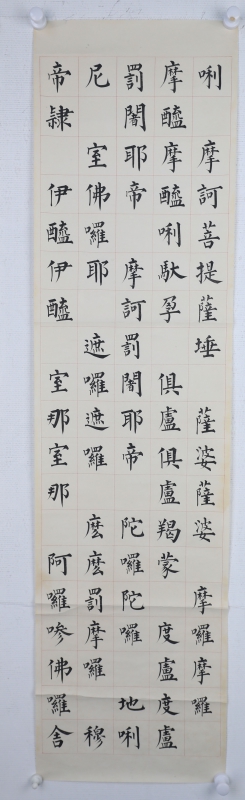 唎 摩訶菩提薩埵 薩婆薩婆 摩囉摩囉
摩醯摩醯 唎馱孕 俱盧俱盧羯蒙 度盧度盧
罰闍耶帝 摩訶罰闍耶帝 陀囉陀囉 地唎
尼 室佛囉耶 遮囉遮囉 麼麼罰摩囉 穆
帝隸 伊醯伊醯 室那室那 阿囉嘇佛囉舍